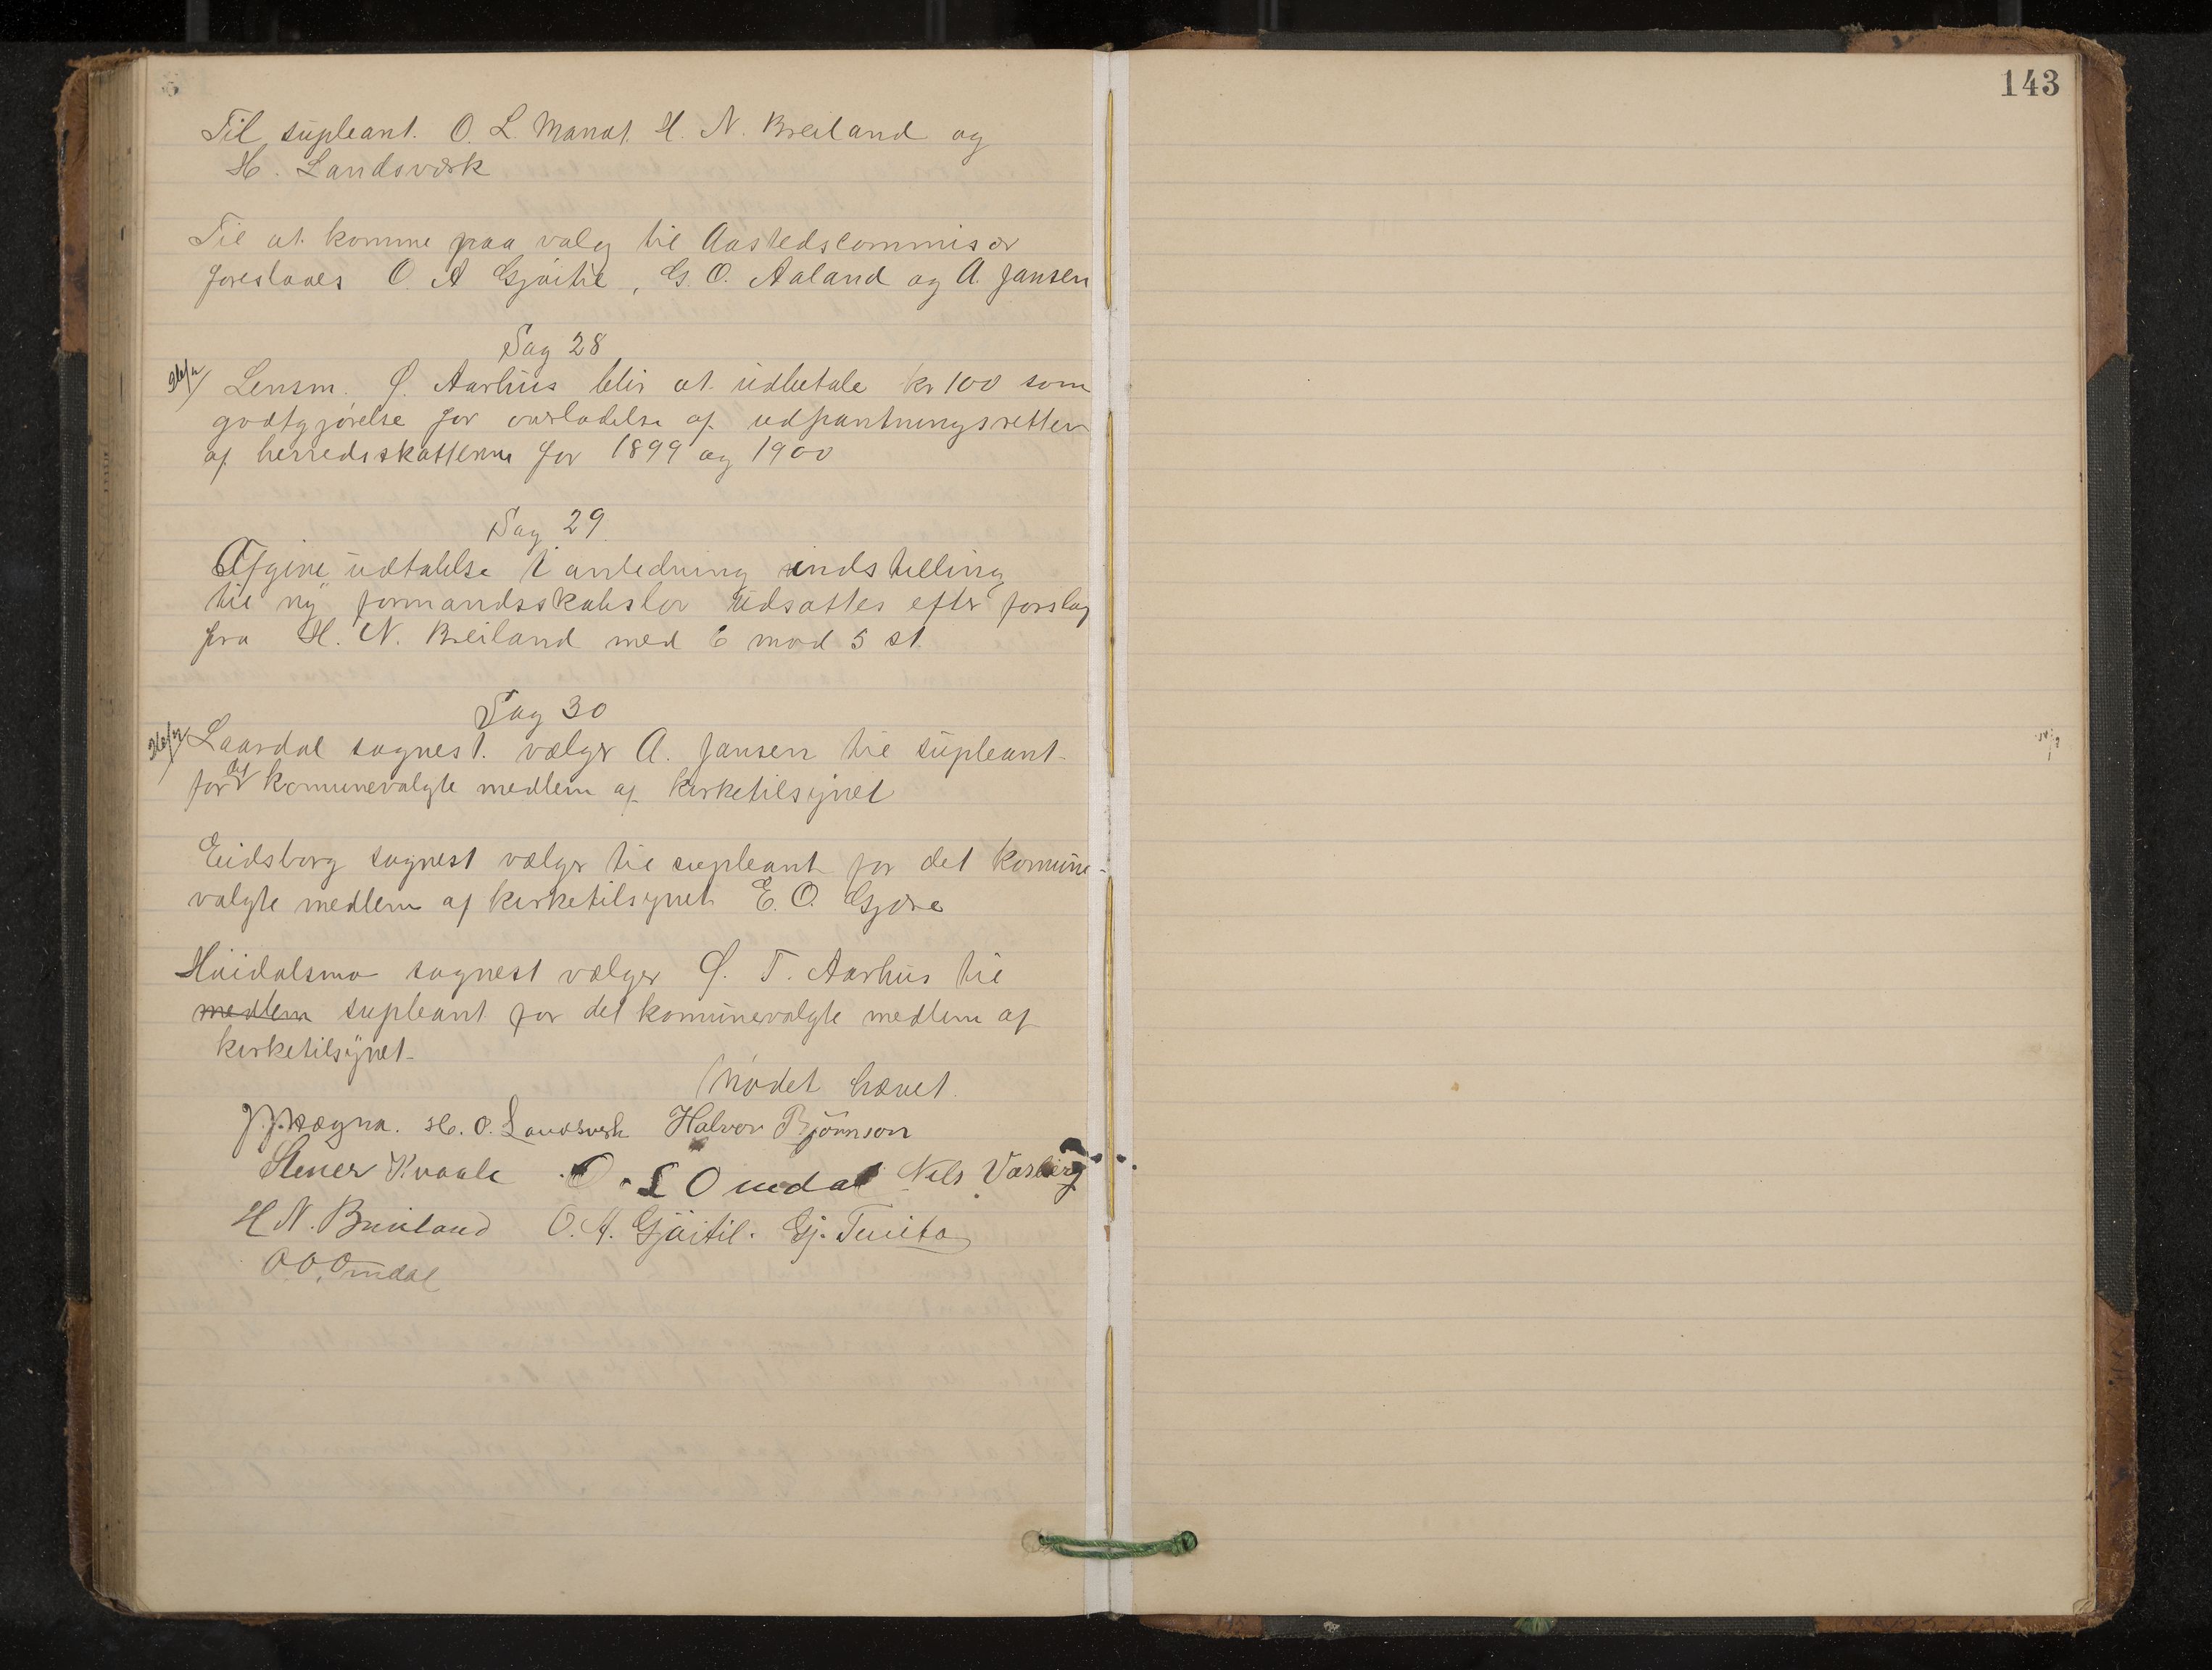 143
Til supleant. O. L. Manat. H. N. Breiland og
H. Landsværk
Til at komme paa valg til Aastedscommisær
foreslaaes O. A Gjøitil, G. O. Aaland og A. Jansen
Sag 28
Lensm. Ø. Aarhus blir at udbetale kr 100 som
godtgjørelse for overladelse af udpantningsretten
af herredsskatterne for 1899 og 1900
Sag 29.
Afgive udtalelse i anledning indstilling
til ny formandsskabslov udsattes efter forslag
fra H. N. Breiland med 6 mod 5 st.
Sag 30
Laardal sognest. vælger A. Jansen til supleant
for det komunevalgte medlem af kirketilsynet
Eidsborg sognest vælger til supleant for det komune-
valgte medlem af kirketilsynet E. O. Gjøre
Høidalsmo sognest vælger Ø. T. Aarhus til
medlem supleant for det komunevalgte medlem af
kirketilsynet
Mødet hævet.
H. O. Landsverk Halvor Bjørnson
Stener Kvaale O. L Omdal Nils Vasberg
H N. Breiland O. A. Gjøitil. Gj. Tveito
O O. Omdal